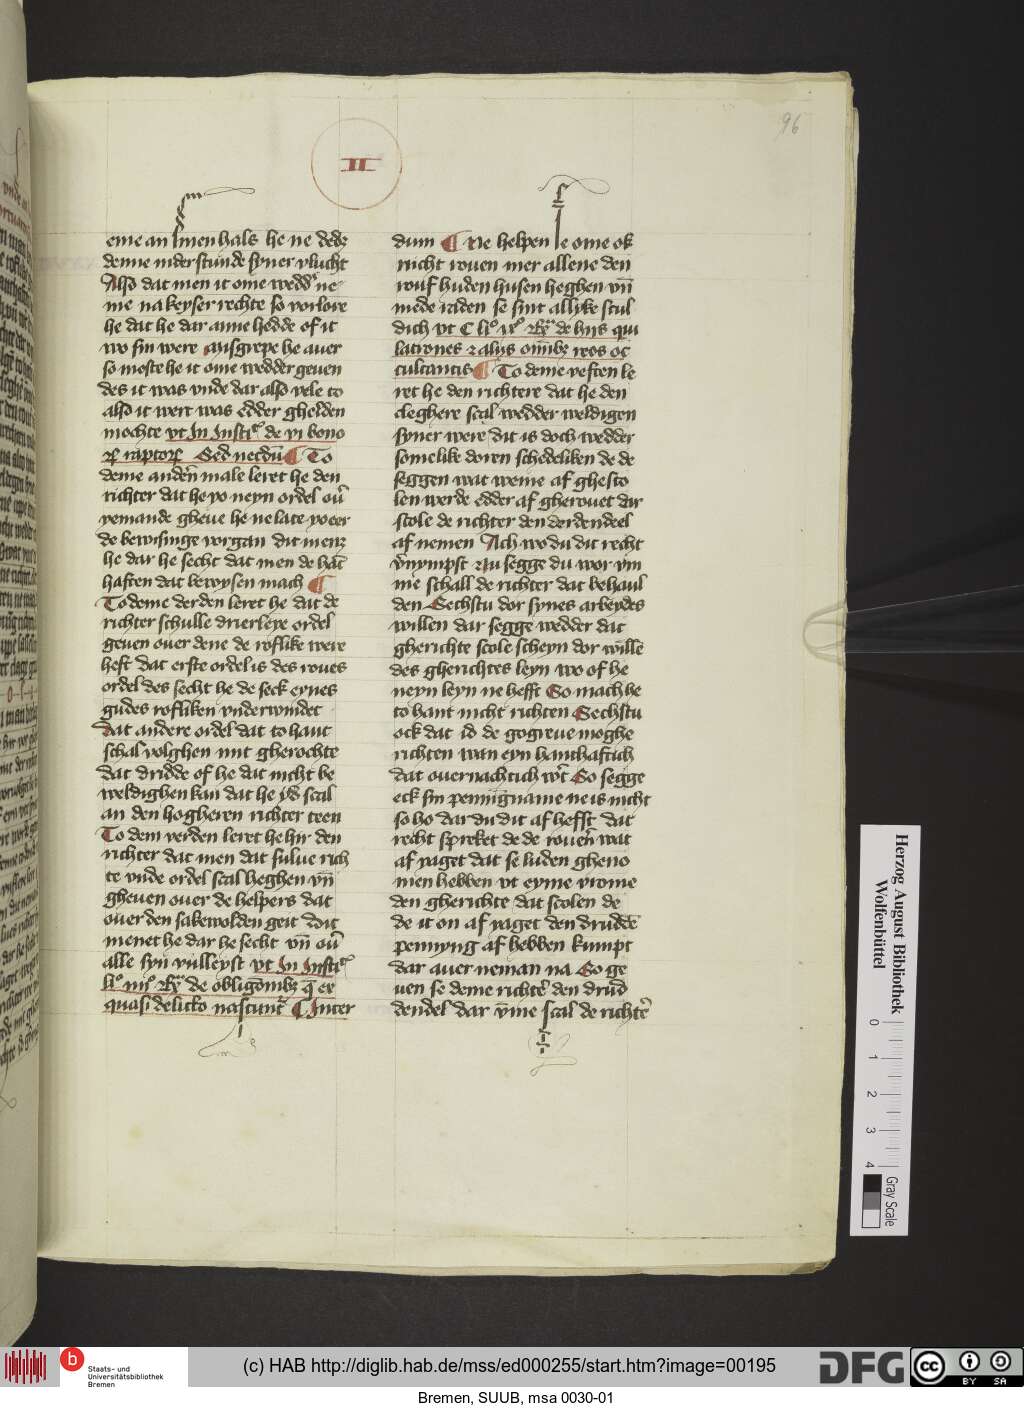 96
II
eme an simen hals he ne dede
denne niderstunde syner vlucht
Also dat men it ome wedd' ne
me na keyser rechte so vorlore
he dat he dar anne hedde of it
wo sin were ausgrepe he auer
so moste he it ome wedder geuen
des it was vnde dar also vele to
also it wert was edder ghelden
mochte vt In Insti de vi bono
raptor Sed necdū To
deme andern male leret he den
richter dat he vo neyn ordel ou'
yemande gheue he ne late vo eer
de bewisinge vorgan dit menet
he dar he secht dat men de hāt
haften dat bewysen mach
To deme derden leret he dat de
richter schulle drierleye ordel
geuen ouer dene de roflike were
heft dat erste ordel is des roues
ordel des secht he de seck eynes
gudes rofliken vnderwindet
dat andere ordel dat to hant
schal volghen mit gherochte
dat dridde of he dat nicht be
weldighen kan dat he id scal
an den hogheren richter teen
To dem verden leret he hir den
richter dat men dat sulue rich
te vnde ordel scal heghen vn̄
gheuen ouer de helpers dat
ouer den sakewolden geit dit
menet he dar he secht vn̄ ou'
alle syn vulleyst vt In Insti
li° iiii° de obligom q̄ ex
quasi delicto nascunt' Inter
dum Ne helpen se ome ok
nicht rouen mer allene den
rouf huden husen heghen vn̄
mede riden se sint allike scul
dich vt C li° ix° de hiis qui
latrones z alys omīb reos oc
cultantis To deme veften le
ret he den richtere dat he den
cleghere scal wedder weldigen
syner were dit is doch wedder
somelike doren schedeliken de de
seggen wat weme af ghesto
len werde edder af gherouet dar
scole de richter den derdendeel
af nemen Ach wo du dit recht
v̄nympst Nu segge du wor vm
me schall de richter dat behaul
den Sechstu dor synes arbeydes
willen dar segge wedder dat
gherichte scole scheyn dor willē
des gherichtes leyn wo of he
neyn leyn ne hefft So mach he
to hant nicht richten Sechstu
ock dat id de gogreue moghe
richten wan eyn hanthaftich
dat ouernachtich w't So segge
eck sin pennīgname ne is nicht
so ho dar du dit af hefft dat
recht spreket de de rouen wat
af yaget dat se luden gheno
men hebben vt eyme vrome
den gherichte dat scolen de
de it on af yaget den druddē
pennyng af hebben kumpt
dar auer neman na So ge
uen se deme richte' den drud
dendel dar v̄me scal de richte'
Herzog August Bibliothek
Wolfenbüttel
0 1 2 3 4
Gray Scale
b Staats- und
Universitätsbibliothek
Bremen
(c) HAB http://diglib.hab.de/mss/ed000255/start.htm?image=00195
DFG
cc BY SA
Bremen, SUUB, msa 0030-01